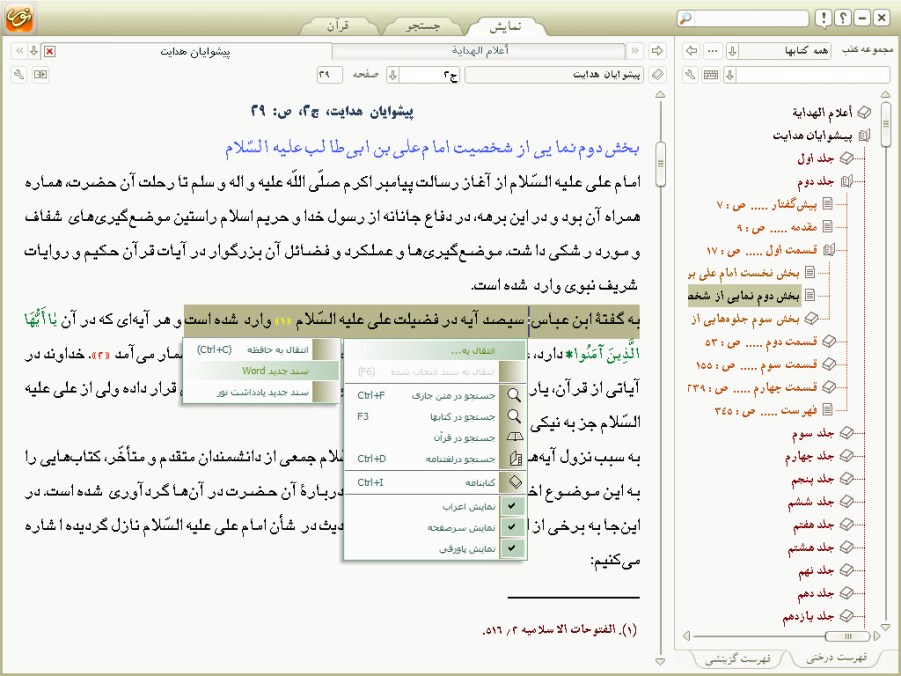 نمایش
جستجو
قرآن
أعلام الهدایة
پیشوایان هدایت
پیشوایان هدایت
ج2
صفحه
29
پیشوایان هدایت، ج2، ص: 29
بخش دوم نمایی از شخصیت امام علی بن ابی طالب علیه السّلام
امام علی علیه السّلام از آغاز رسالت پیامبر اکرم صلّی اللّه علیه و اله و سلم تا رحلت آن حضرت، هماره
همراه آن بود و در این برهه، در دفاع جانانه از رسول خدا و حریم اسلام راستین موضع‌گیری‌های شفاف
و مورد رشکی داشت. موضع‌گیری‌ها و عملکرد و فضائل آن بزرگوار در آیات قرآن حکیم و روایات
شریف نبوی وارد شده است.
به گفتهٔ ابن عباس: سیصد آیه در فضیلت علی علیه السّلام «1» وارد شده است و هر آیه‌ای که در آن یٰا أَیُّهَا
الَّذِینَ آمَنُوا* دارد، شمار می‌آمد «2». خداوند در
آیاتی از قرآن، یار قرار داده ولی از علی علیه
السّلام جز به نیکی
به سبب نزول آیه‌ها لام جمعی از دانشمندان متقدم و متأخّر، کتاب‌هایی را
به این موضوع اخ دربارهٔ آن حضرت در آن‌ها گردآوری شده است. در
این‌جا به برخی از ا دیث در شأن امام علی علیه السّلام نازل گردیده اشاره
می‌کنیم:
(1). الفتوحات الاسلامیه 2/ 516.
انتقال به...
انتقال به سند انتخاب شده (F6)
جستجو در متن جاری Ctrl+F
جستجو در کتابها F3
جستجو در قرآن
جستجو درلغتنامه Ctrl+D
کتابنامه Ctrl+I
نمایش اعراب
نمایش سرصفحه
نمایش پاورقی
انتقال به حافظه (Ctrl+C)
سند جدید Word
سند جدید یادداشت نور
مجموعه کتب
همه کتابها
أعلام الهدایة
پیشوایان هدایت
جلد اول
جلد دوم
پیش‌گفتار ..... ص : 7
مقدمه ..... ص : 9
قسمت اول ..... ص : 17
بخش نخست امام علی بر
بخش دوم نمایی از شخص
بخش سوم جلوه‌هایی از
قسمت دوم ..... ص : 53
قسمت سوم ..... ص : 155
قسمت چهارم ..... ص : 239
فهرست ..... ص : 345
جلد سوم
جلد چهارم
جلد پنجم
جلد ششم
جلد هفتم
جلد هشتم
جلد نهم
جلد دهم
جلد یازدهم
فهرست درختی
فهرست گزینشی
نور